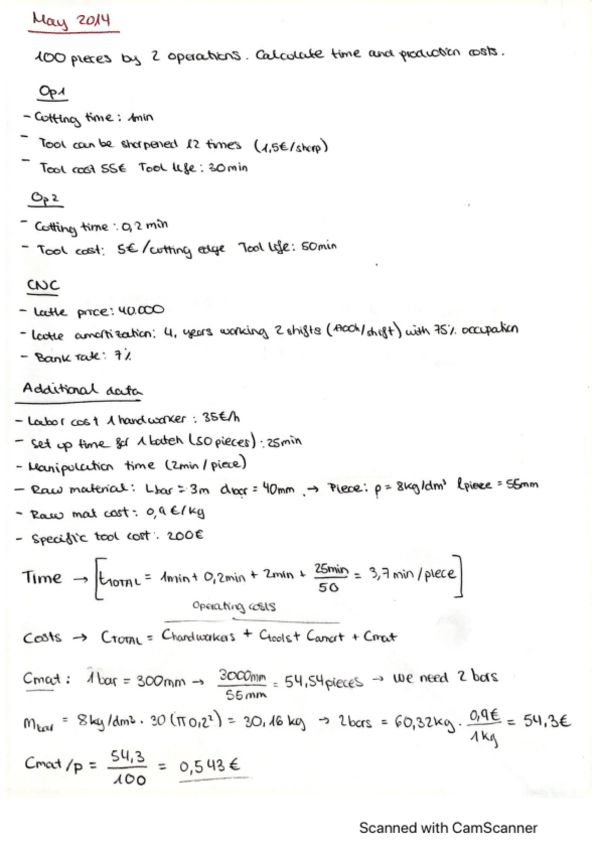 May 2014
100 pieces by 2 operations. Calculate time and production costs.
Op1
- Cutting time: 1min
- Tool can be sharpened 12 times (1,5€/sharp)
- Tool cost 55€ Tool life: 30min
Op2
- Cutting time: 0,2 min
- Tool cost: 5€/cutting edge Tool life: 50min
CNC
- Lathe price: 40.000
- Lathe amortization: 4, years working 2 shifts (/shift) with 75% occupation
- Bank rate: 7%
Additional data
- Labor cost 1 handworker: 35€/h
- Set up time for 1 batch (50 pieces): 25min
- Manipulation time (2min/piece)
- Raw material: Lbar = 3m dbar = 40mm → Piece: ρ = 8kg/dm³ lpiece = 55mm
- Raw mat cost: 0,9€/kg
- Specific tool cost: 200€
Time → [tTOTAL = 1min + 0,2min + 2min + 25min/50 = 3,7min/piece]
Operating costs
Costs → CTOTAL = Chandworkers + Ctools + Camort + Cmat
Cmat: 1bar = 300mm → 3000mm/55mm = 54,54pieces → we need 2 bars
Mbar = 8kg/dm³ · 30(π0,2²) = 30,16kg → 2bars = 60,32kg · 0,9€/1kg = 54,3€
Cmat/p = 54,3/100 = 0,543€
Scanned with CamScanner